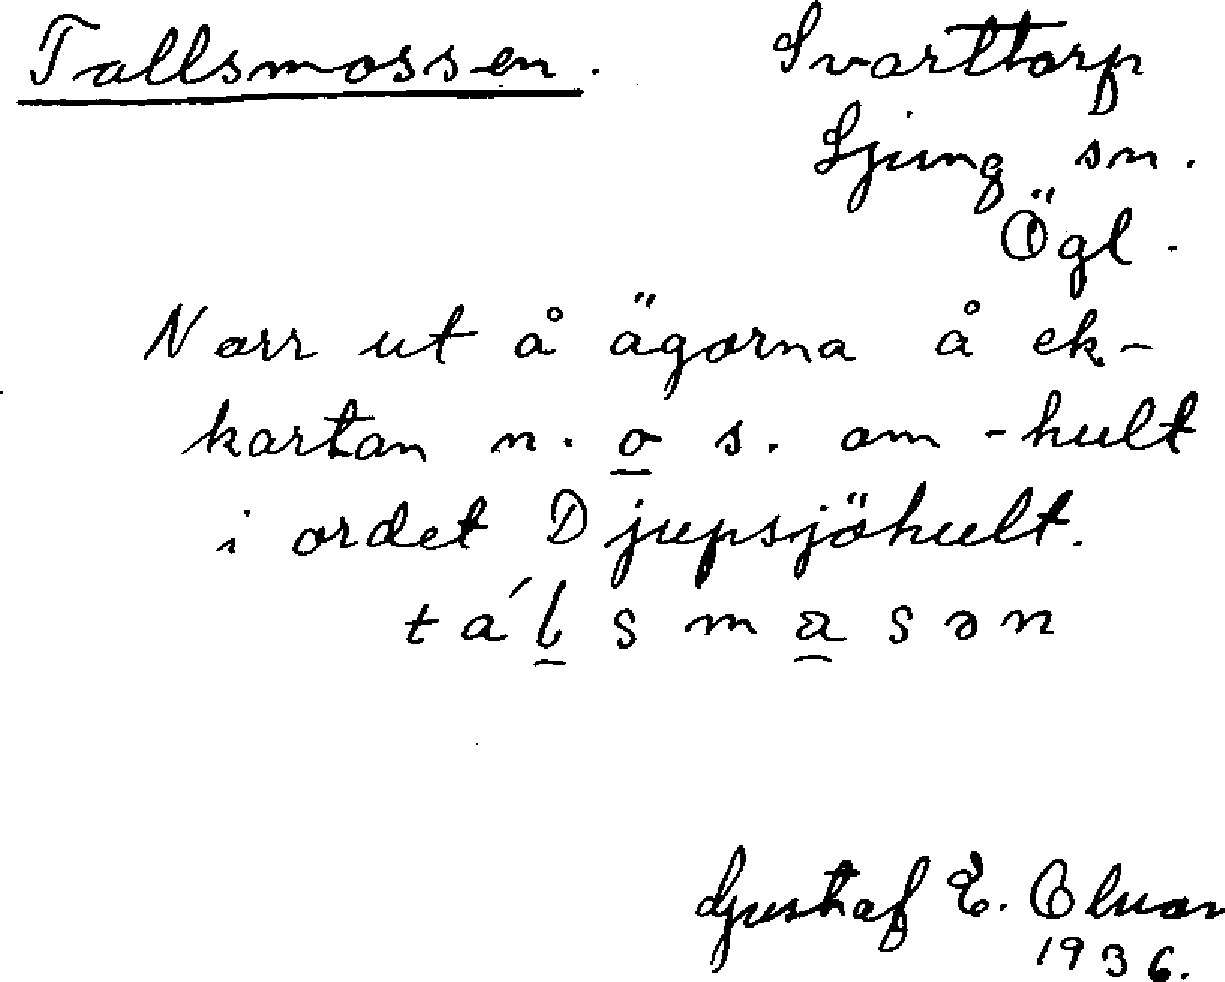 Tallsmossen. Svarttorp
Ljung sn.
Ögl.
Norr ut å ägorna å ek-
kartan n. o s. om -hult
i ordet Djupsjöhult.
tálsmasən
Gustaf E.
1936.